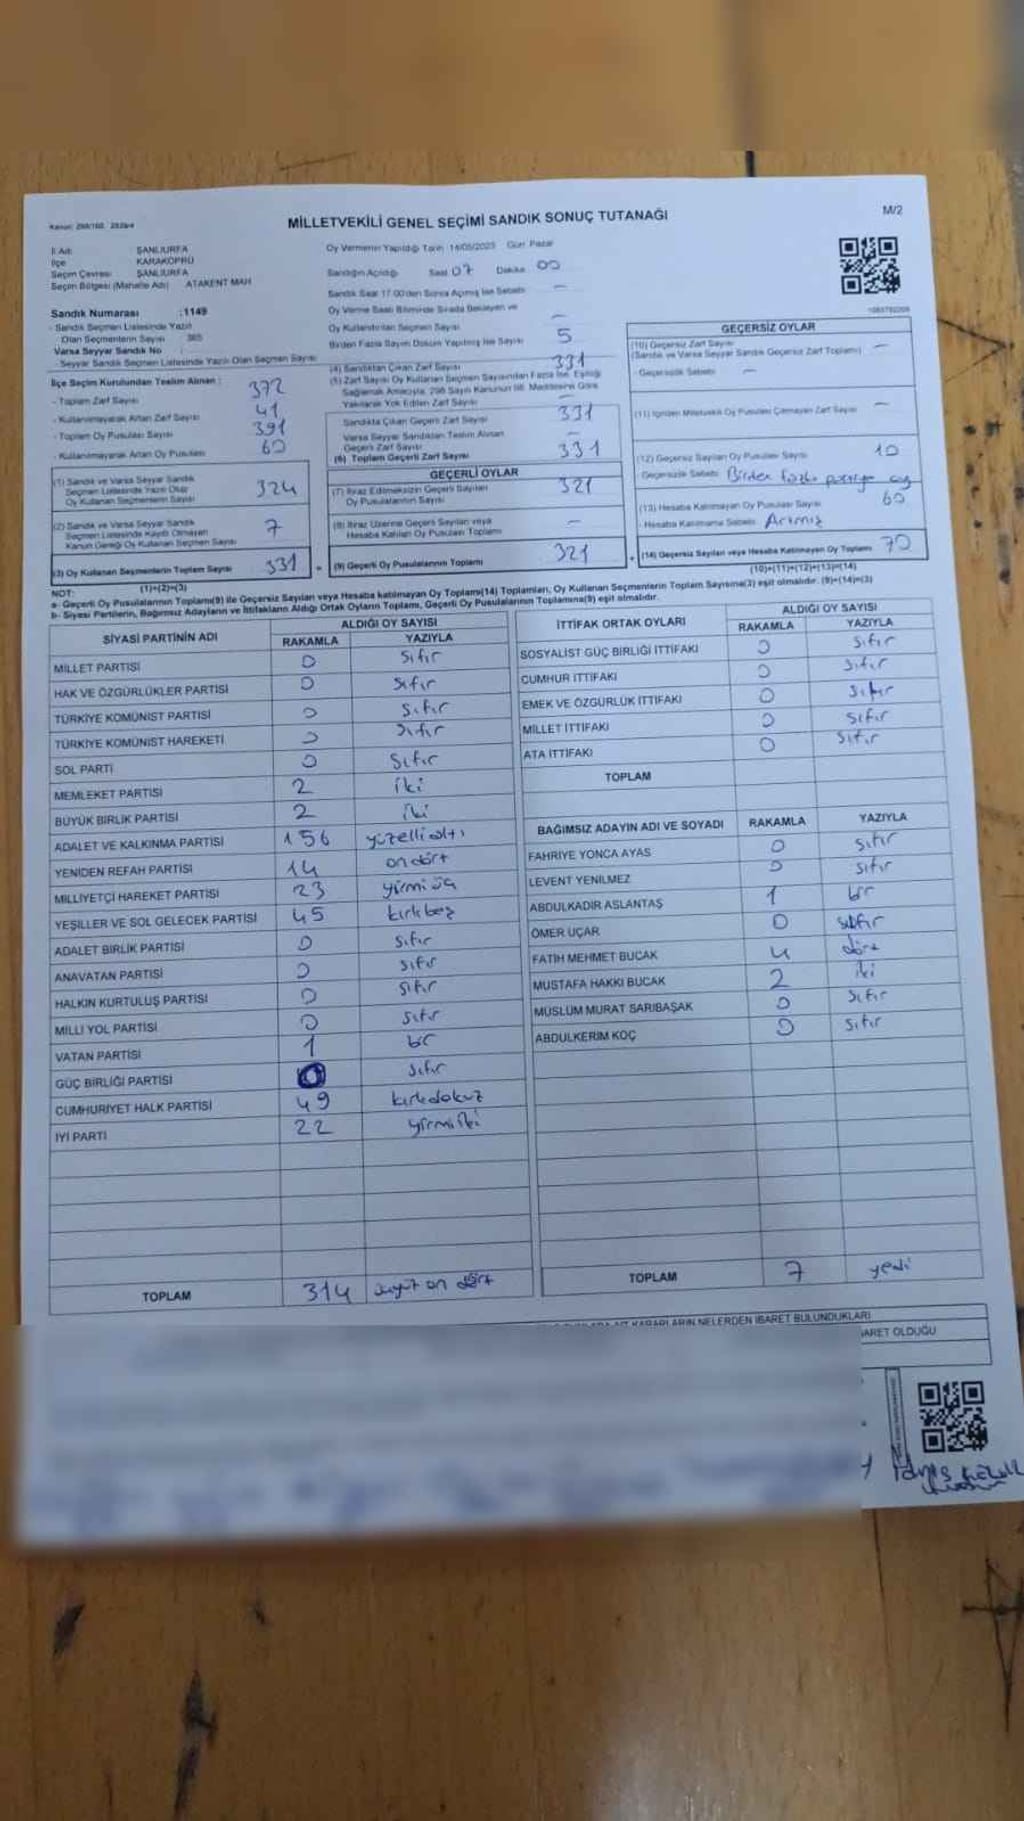 Kanun: 298/105, 2839/4
MİLLETVEKİLİ GENEL SEÇİMİ SANDIK SONUÇ TUTANAĞI
M/2
İl Adı : ŞANLIURFA
İlçe : KARAKÖPRÜ
Seçim Çevresi : ŞANLIURFA
Seçim Bölgesi (Mahalle Adı) : ATAKENT MAH
Oy Vermenin Yapıldığı Tarih: 14/05/2023 Gün: Pazar
Sandığın Açıldığı Saat: 07 Dakika: 00
Sandık Saat 17.00'den Sonra Açılmış İse Sebebi —
Oy Verme Saati Bitiminde Sırada Bekleyen ve
Oy Kullandırılan Seçmen Sayısı —
Birden Fazla Sayım Döküm Yapılmış İse Sayısı 5
Sandık Numarası :1149
- Sandık Seçmen Listesinde Yazılı
Olan Seçmenlerin Sayısı 365
Varsa Seyyar Sandık No
- Seyyar Sandık Seçmen Listesinde Yazılı Olan Seçmen Sayısı
İlçe Seçim Kurulundan Teslim Alınan :
- Toplam Zarf Sayısı 372
- Kullanılmayarak Artan Zarf Sayısı 41
- Toplam Oy Pusulası Sayısı 391
- Kullanılmayarak Artan Oy Pusulası 60
(1) Sandık ve Varsa Seyyar Sandık
Seçmen Listesinde Yazılı Olup
Oy Kullanan Seçmenlerin Sayısı 324
(2) Sandık ve Varsa Seyyar Sandık
Seçmen Listesinde Kayıtlı Olmayan
Kanun Gereği Oy Kullanan Seçmen Sayısı 7
(3) Oy Kullanan Seçmenlerin Toplam Sayısı 331
(1)+(2)=(3)
(4) Sandıktan Çıkan Zarf Sayısı 331
(5) Zarf Sayısı Oy Kullanan Seçmen Sayısından Fazla İse, Eşitliği
Sağlamak Amacıyla, 298 Sayılı Kanunun 98. Maddesine Göre
Yakılarak Yok Edilen Zarf Sayısı —
Sandıkta Çıkan Geçerli Zarf Sayısı 331
Varsa Seyyar Sandıktan Teslim Alınan
Geçerli Zarf Sayısı —
(6) Toplam Geçerli Zarf Sayısı 331
GEÇERLİ OYLAR
(7) İtiraz Edilmeksizin Geçerli Sayılan
Oy Pusulalarının Sayısı 321
(8) İtiraz Üzerine Geçerli Sayılan veya
Hesaba Katılan Oy Pusulası Toplamı —
(9) Geçerli Oy Pusulalarının Toplamı 321
GEÇERSİZ OYLAR
(10) Geçersiz Zarf Sayısı
(Sandık ve Varsa Seyyar Sandık Geçersiz Zarf Toplamı) —
- Geçersizlik Sebebi —
(11) İçinden Milletvekili Oy Pusulası Çıkmayan Zarf Sayısı —
(12) Geçersiz Sayılan Oy Pusulası Sayısı 10
Geçersizlik Sebebi: Birden fazla partiye oy
(13) Hesaba Katılmayan Oy Pusulası Sayısı 60
- Hesaba Katılmama Sebebi: Artmış
(14) Geçersiz Sayılan veya Hesaba Katılmayan Oy Toplamı 70
(10)+(11)+(12)+(13)=(14)
NOT:
a- Geçerli Oy Pusulalarının Toplamı(9) ile Geçersiz Sayılan veya Hesaba katılmayan Oy Toplamı(14) Toplamları, Oy Kullanan Seçmenlerin Toplam Sayısına(3) eşit olmalıdır. (9)+(14)=(3)
b- Siyasi Partilerin, Bağımsız Adayların ve İttifakların Aldığı Ortak Oyların Toplamı, Geçerli Oy Pusulalarının Toplamına(9) eşit olmalıdır.
SİYASİ PARTİNİN ADI ALDIĞI OY SAYISI
RAKAMLA YAZIYLA
MİLLET PARTİSİ 0 sıfır
HAK VE ÖZGÜRLÜKLER PARTİSİ 0 sıfır
TÜRKİYE KOMÜNİST PARTİSİ 0 sıfır
TÜRKİYE KOMÜNİST HAREKETİ 0 sıfır
SOL PARTİ 0 sıfır
MEMLEKET PARTİSİ 2 iki
BÜYÜK BİRLİK PARTİSİ 2 iki
ADALET VE KALKINMA PARTİSİ 156 yüzellialtı
YENİDEN REFAH PARTİSİ 14 ondört
MİLLİYETÇİ HAREKET PARTİSİ 23 yirmiüç
YEŞİLLER VE SOL GELECEK PARTİSİ 45 kırkbeş
ADALET BİRLİK PARTİSİ 0 sıfır
ANAVATAN PARTİSİ 0 sıfır
HALKIN KURTULUŞ PARTİSİ 0 sıfır
MİLLİ YOL PARTİSİ 0 sıfır
VATAN PARTİSİ 1 bir
GÜÇ BİRLİĞİ PARTİSİ 0 sıfır
CUMHURİYET HALK PARTİSİ 49 kırkdokuz
İYİ PARTİ 22 yirmiiki
TOPLAM 314 üçyüz on dört
İTTİFAK ORTAK OYLARI ALDIĞI OY SAYISI
RAKAMLA YAZIYLA
SOSYALİST GÜÇ BİRLİĞİ İTTİFAKI 0 sıfır
CUMHUR İTTİFAKI 0 sıfır
EMEK VE ÖZGÜRLÜK İTTİFAKI 0 sıfır
MİLLET İTTİFAKI 0 sıfır
ATA İTTİFAKI 0 sıfır
TOPLAM
BAĞIMSIZ ADAYIN ADI VE SOYADI RAKAMLA YAZIYLA
FAHRİYE YONCA AYAS 0 sıfır
LEVENT YENİLMEZ 0 sıfır
ABDULKADİR ASLANTAŞ 1 bir
ÖMER UÇAR 0 sıfır
FATİH MEHMET BUCAK 4 dört
MUSTAFA HAKKI BUCAK 2 iki
MÜSLÜM MURAT SARIBAŞAK 0 sıfır
ABDULKERİM KOÇ 0 sıfır
TOPLAM 7 yedi
KARARLARIN NELERDEN İBARET BULUNDUKLARI
İBARET OLDUĞU